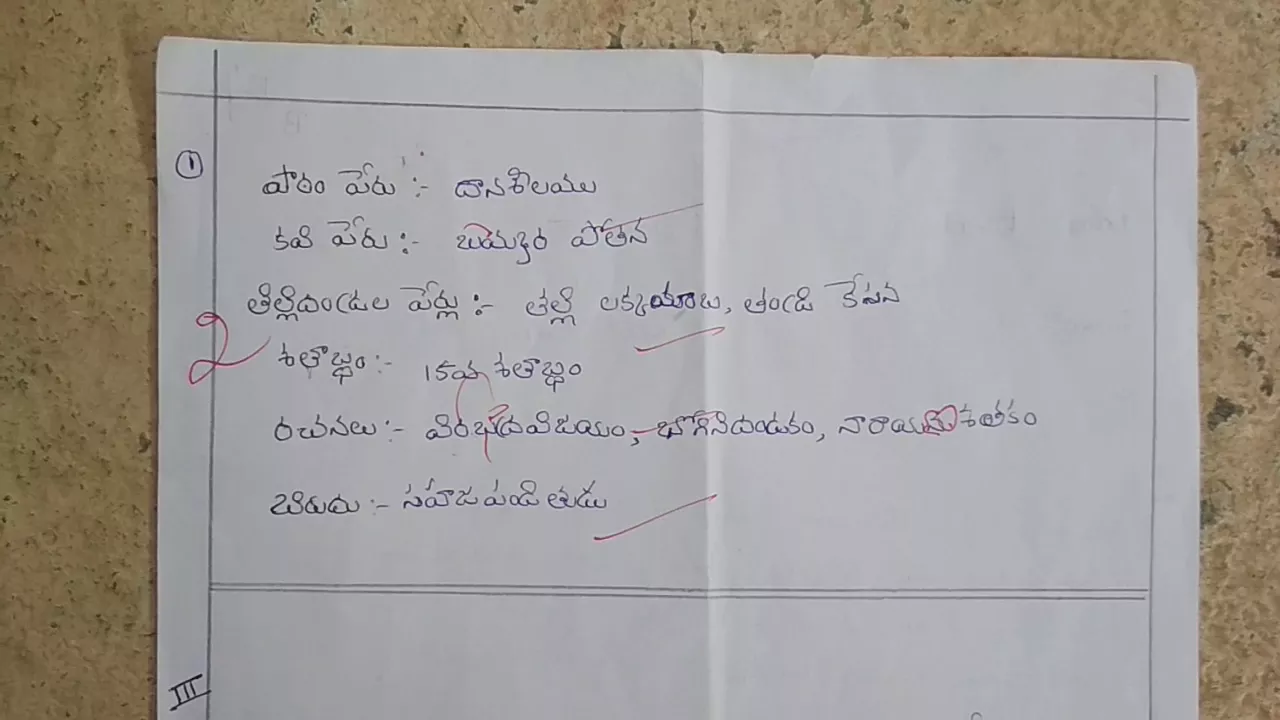 ①
పాఠం పేరు :- దానశీలము
కవి పేరు :- బమ్మెర పోతన
తల్లిదండ్రుల పేర్లు :- తల్లి లక్కమాంబ, తండ్రి కేసన
2
శతాబ్దం :- 15వ శతాబ్దం
రచనలు :- వీరభద్రవిజయం, భోగినిదండకం, నారాయణశతకం
బిరుదు :- సహజ పండితుడు
III